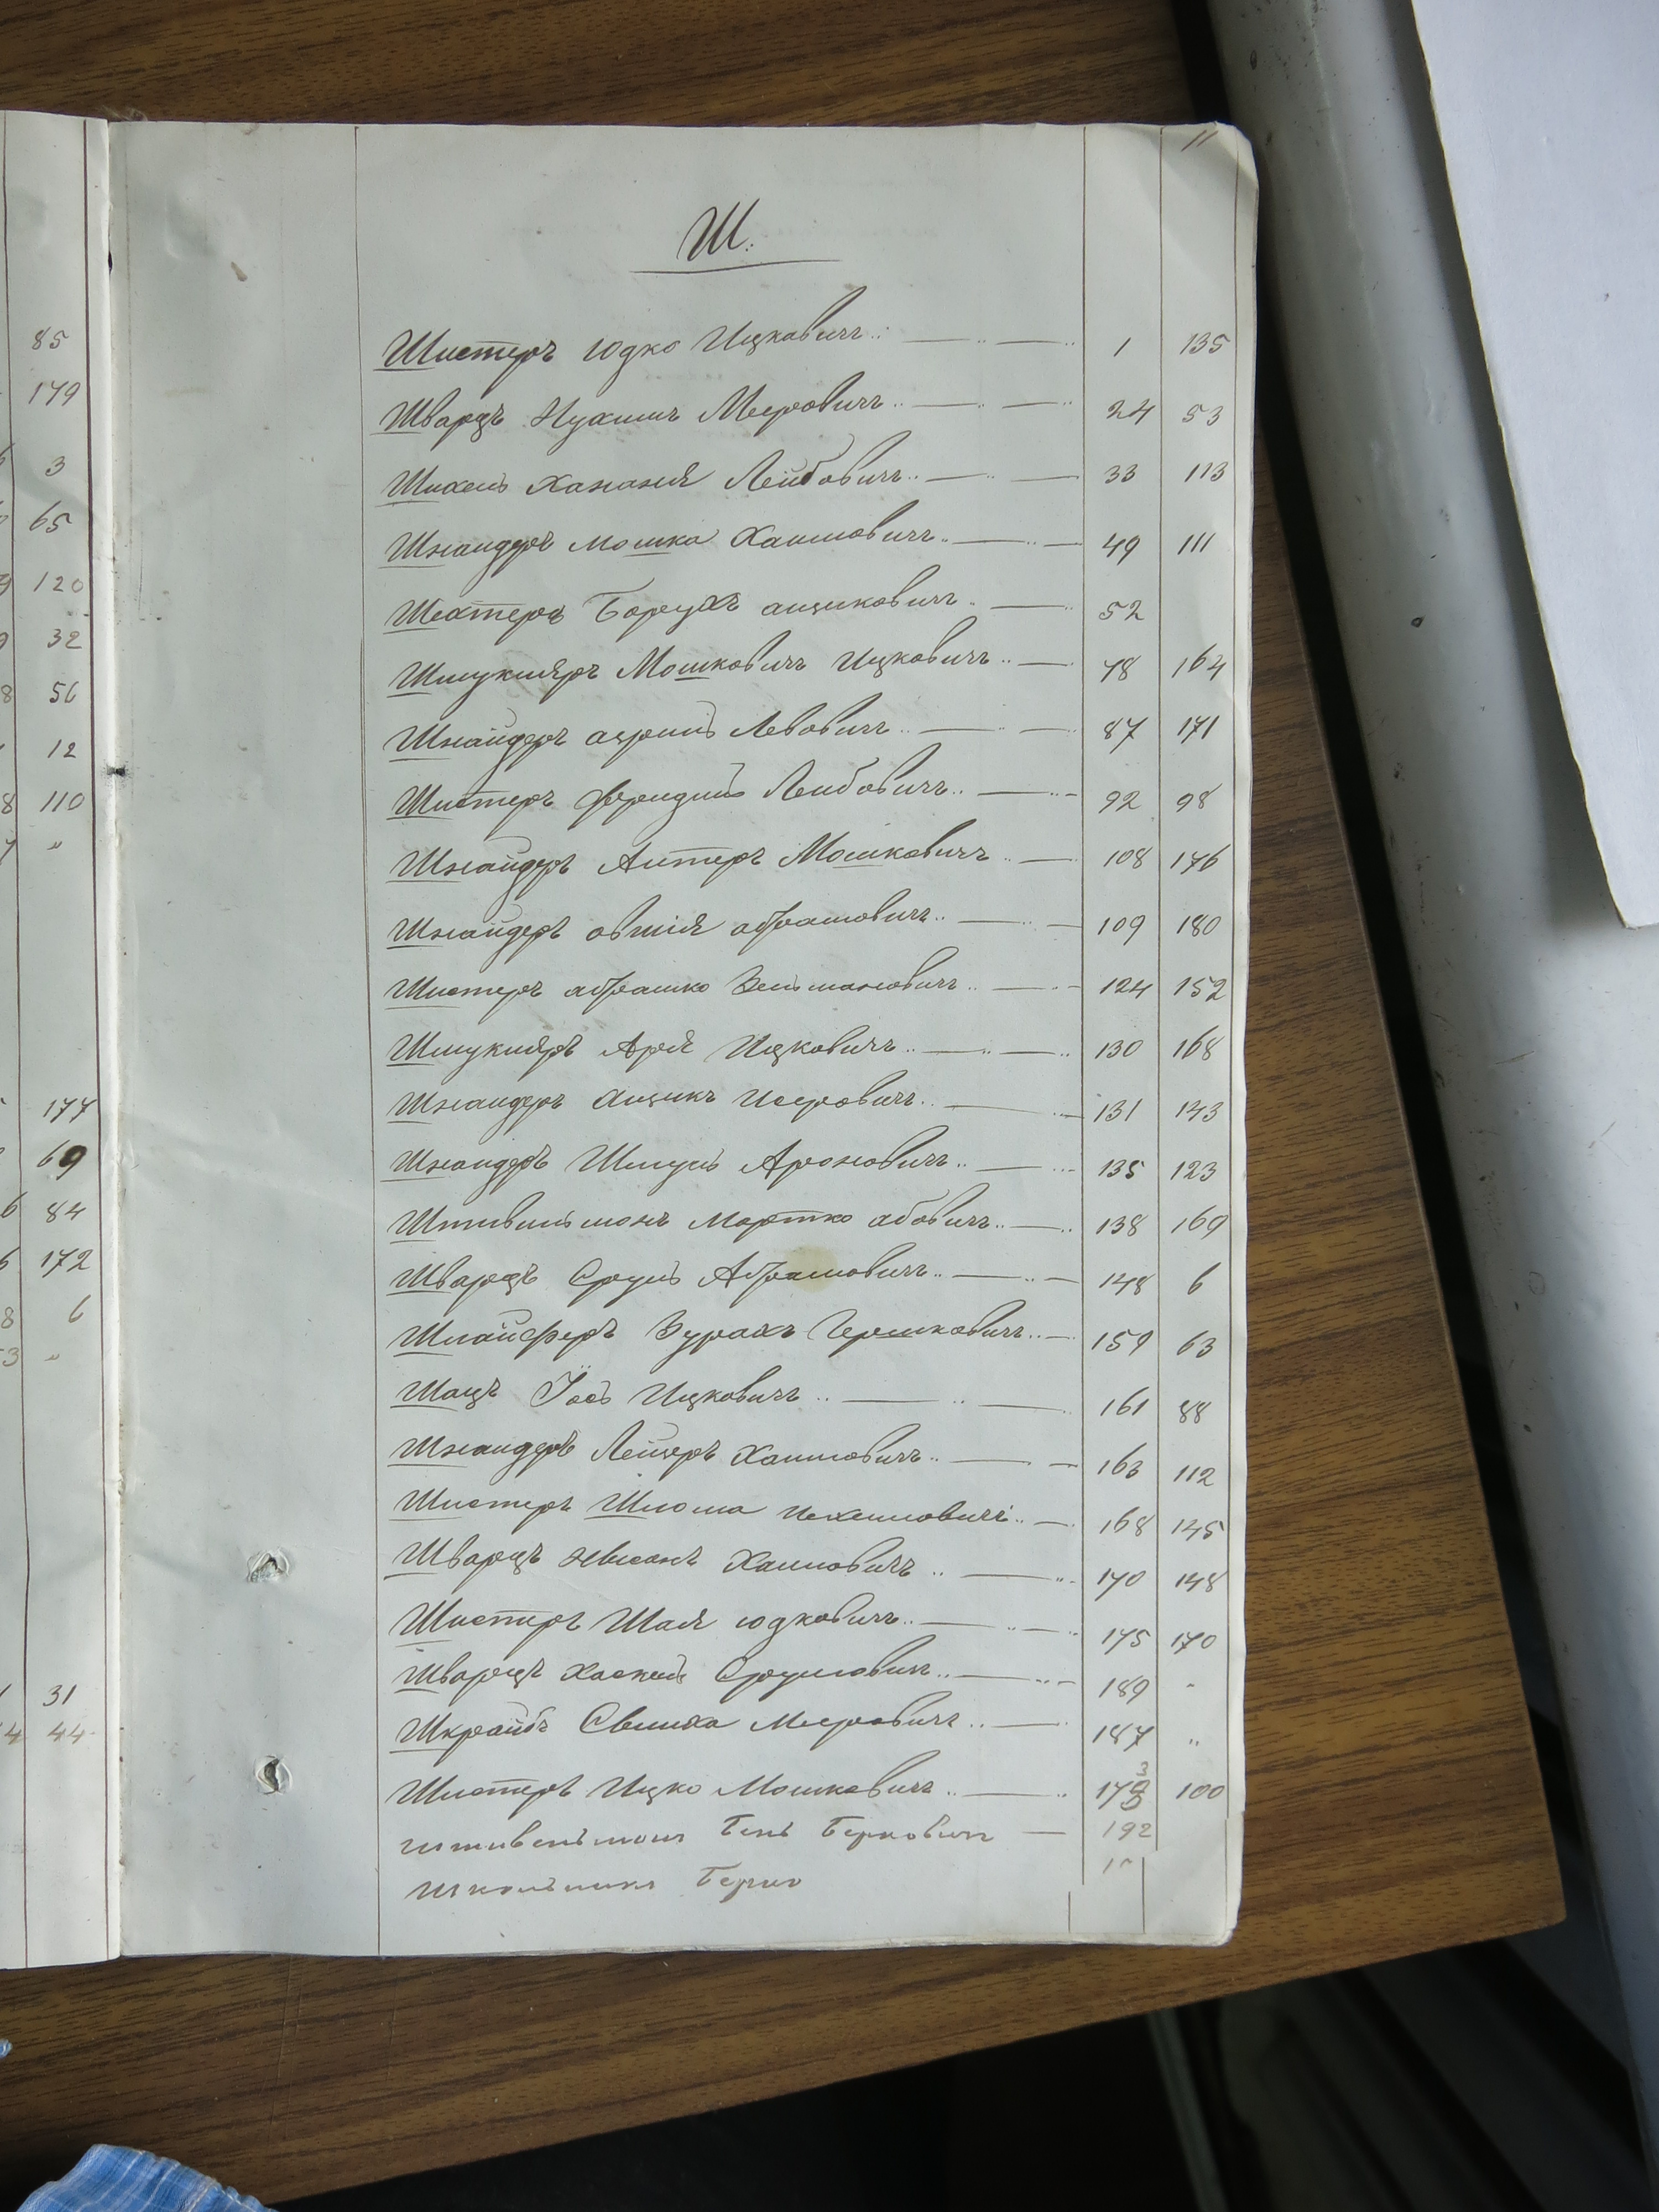 85
179
3
65
120
32
56
12
110
"
177
69
84
172
6
"
31
44
11
Ш.
Шистеръ Юдко Ицковичъ 1 135
Шварцъ Нухимъ Меровичъ 24 53
Шихель Хананя Лейбовичъ 33 113
Шнаидеръ Мошка Хаимовичъ 49 111
Шехтеръ Борухъ аициковичъ 52
Шмукляръ Мошковичъ Ицковичъ 78 164
Шнайдеръ Левовичъ 87 171
Шистеръ Лейбовичъ 92 98
Шнайдеръ Алтеръ Мошковичъ 108 176
Шнайдеръ овшія абрамовичъ 109 180
Шистеръ абрашко Зельмановичъ 124 152
Шмукляръ Аря Ицковичъ 130 168
Шнаидеръ Аицикъ Исеровичъ 131 143
Шнаидеръ Шмуль Ароновичъ 135 123
Штивельманъ Мортко абовичъ 138 169
Шварцъ Сруль Абрамовичъ 148 6
Шлайферъ Зурахъ Гершковичъ 159 63
Шацъ Іось Ицковичъ 161 88
Шнаидеръ Лейзеръ Хаимовичъ 163 112
Шистеръ Шлома Ихелиовичъ 168 145
Шварцъ Нисанъ Хаимовичъ 170 148
Шистеръ Шая Юдковичъ 175 170
Шварцъ Хаскель Срулиовичъ 189 "
Шкрайбъ Меровичъ 187 "
Шистеръ Ицко Мошковичъ 173 100
Штивельманъ Бень Берковичъ 192
Школьникъ Берко